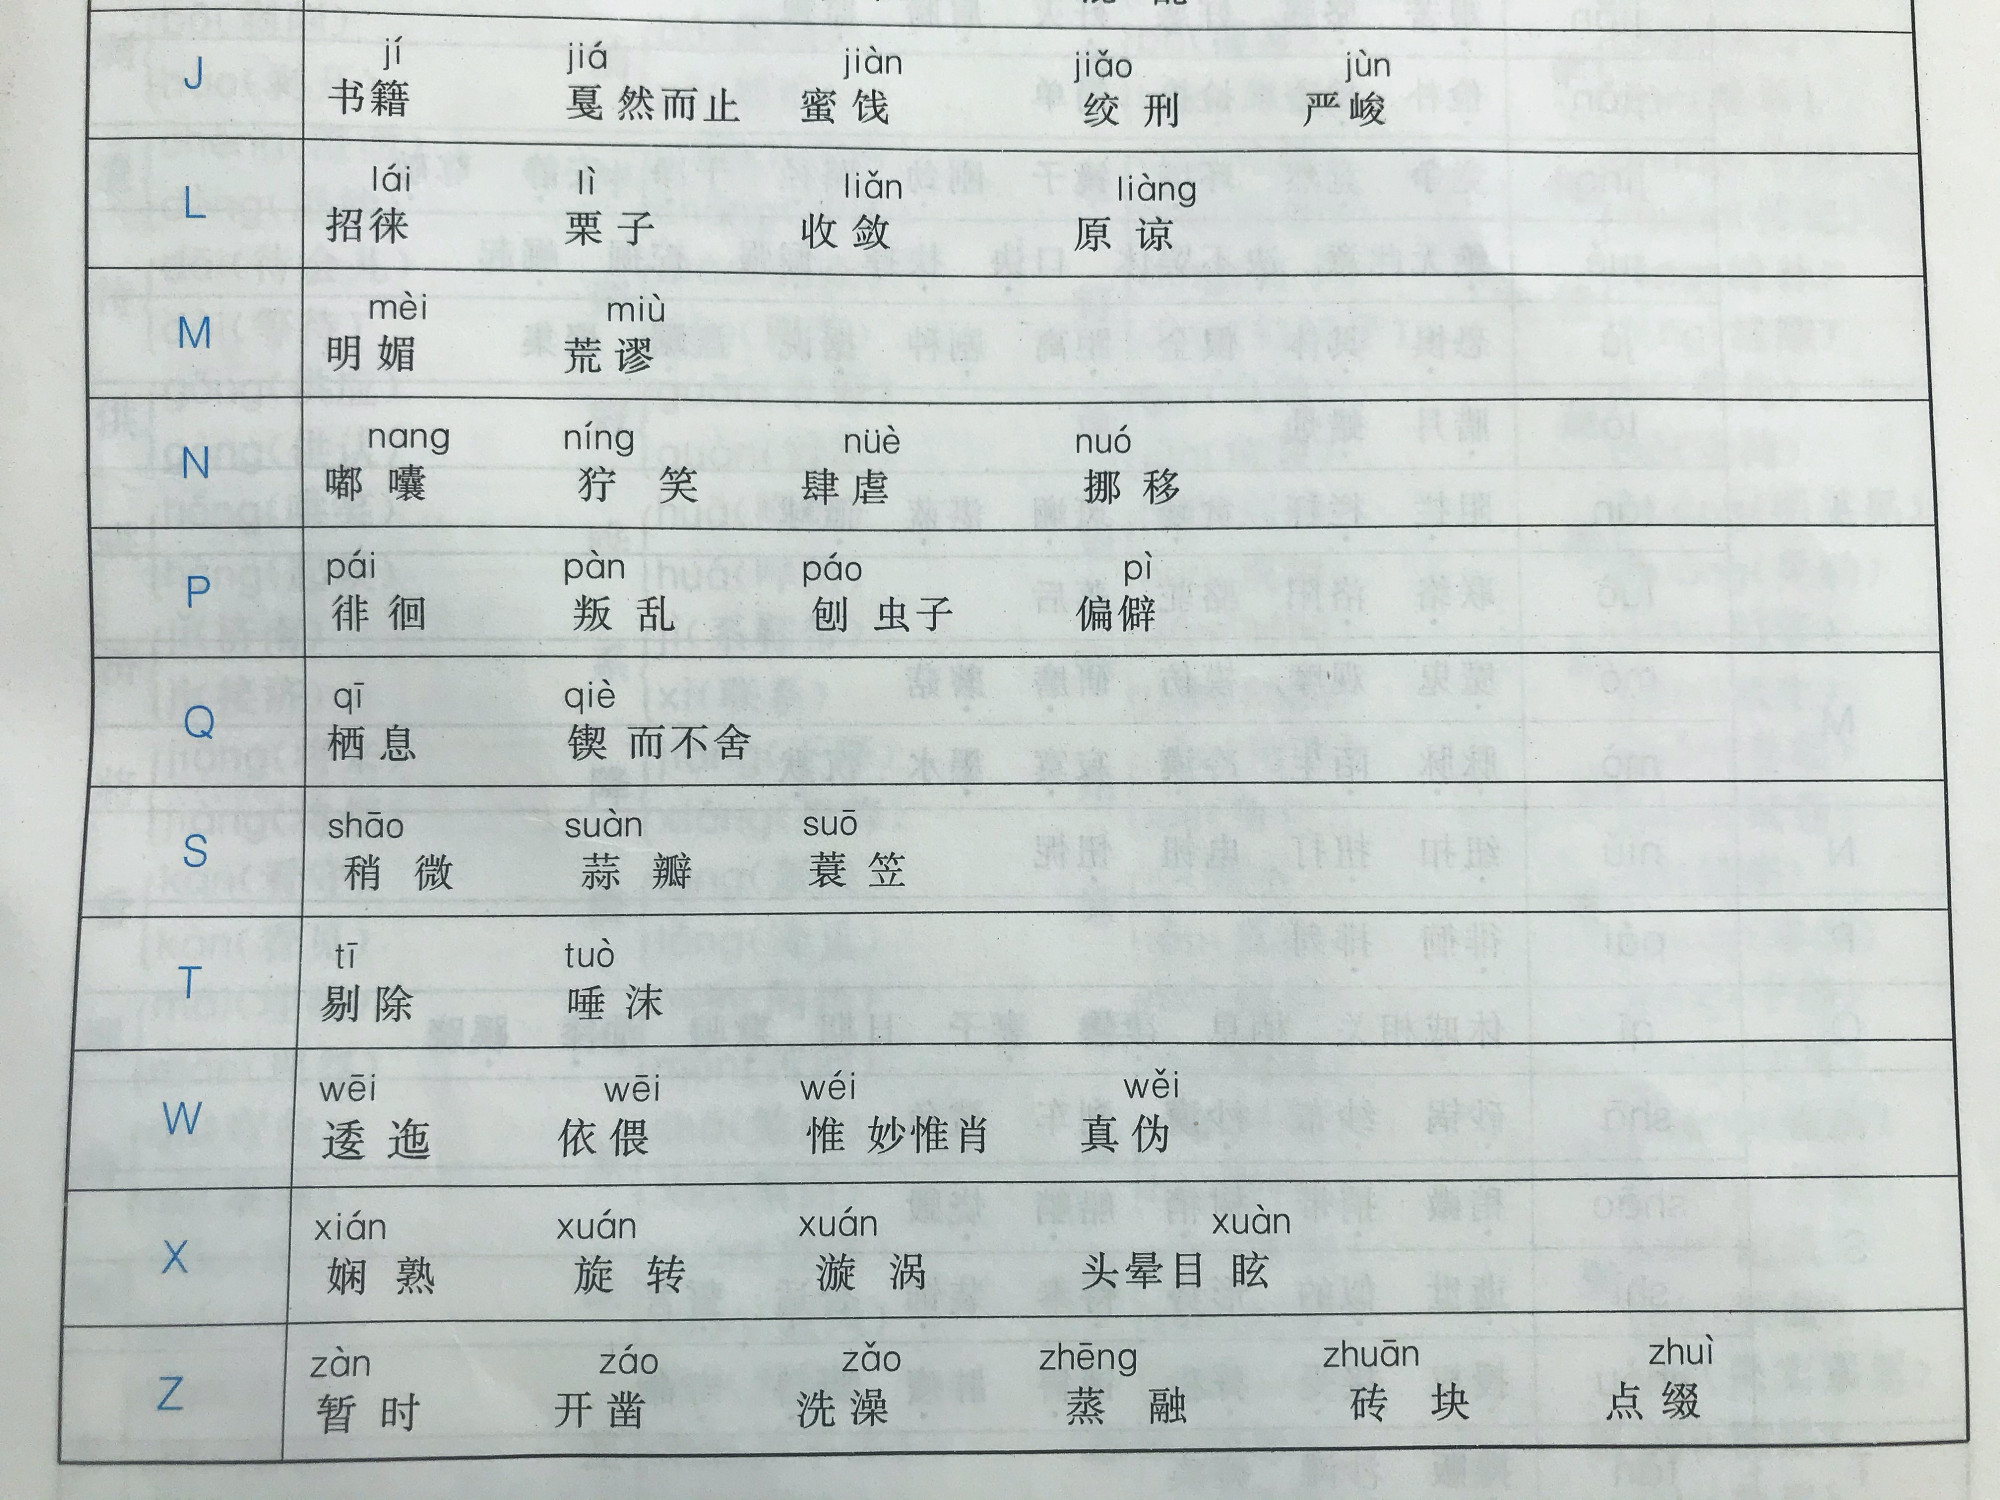 jí jiá jiàn jiǎo jùn
J 书籍 戛然而止 蜜饯 绞刑 严峻
lái lì liǎn liàng
L 招徕 栗子 收敛 原谅
mèi miù
M 明媚 荒谬
nang níng nüè nuó
N 嘟囔 狞笑 肆虐 挪移
pái pàn páo pì
P 徘徊 叛乱 刨虫子 偏僻
qī qiè
Q 栖息 锲而不舍
shāo suàn suō
S 稍微 蒜瓣 蓑笠
tī tuò
T 剔除 唾沫
wēi wēi wéi wěi
W 逶迤 依偎 惟妙惟肖 真伪
xián xuán xuán xuàn
X 娴熟 旋转 漩涡 头晕目眩
zàn záo zǎo zhēng zhuān zhuì
Z 暂时 开凿 洗澡 蒸融 砖块 点缀